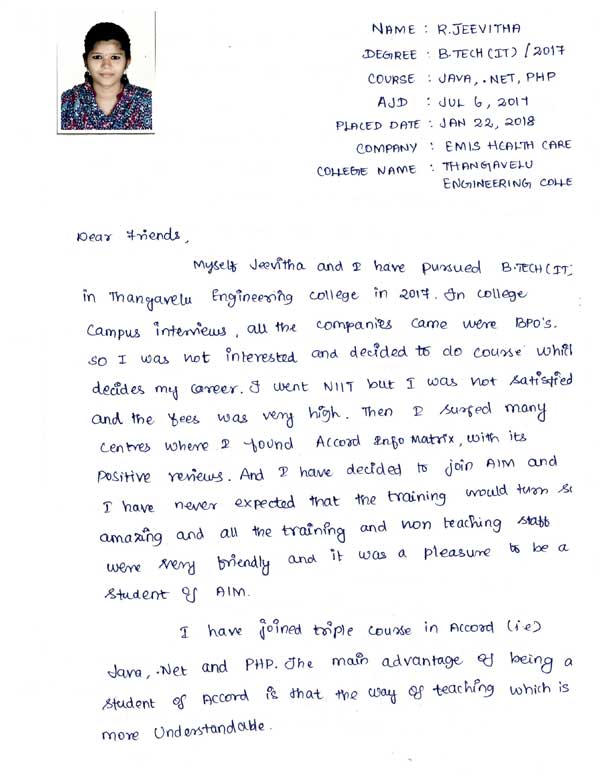 NAME : R.JEEVITHA
DEGREE : B.TECH(IT)/2017
COURSE : JAVA, .NET, PHP
AJD : JUL 6, 2017
PLACED DATE : JAN 22, 2018
COMPANY : EMIS HEALTH CARE
COLLEGE NAME : THANGAVELU
ENGINEERING COLLE
Dear Friends,
Myself Jeevitha and I have pursued B.TECH(IT)
in Thangavelu Engineering college in 2017. In college
campus interviews, all the companies came were BPO's.
So I was not interested and decided to do course whil
decides my career. I went NIIT but I was not satisfied
and the fees was very high. Then I surfed many
centres where I found Accord Info Matrix, with its
positive reviews. And I have decided to join AIM and
I have never expected that the training would turn s
amazing and all the training and non teaching staff
were very friendly and it was a pleasure to be a
student of AIM.
I have joined triple course in Accord (i.e)
Java, .Net and PHP. The main advantage of being a
student of Accord is that the way of teaching which is
more Understandable.